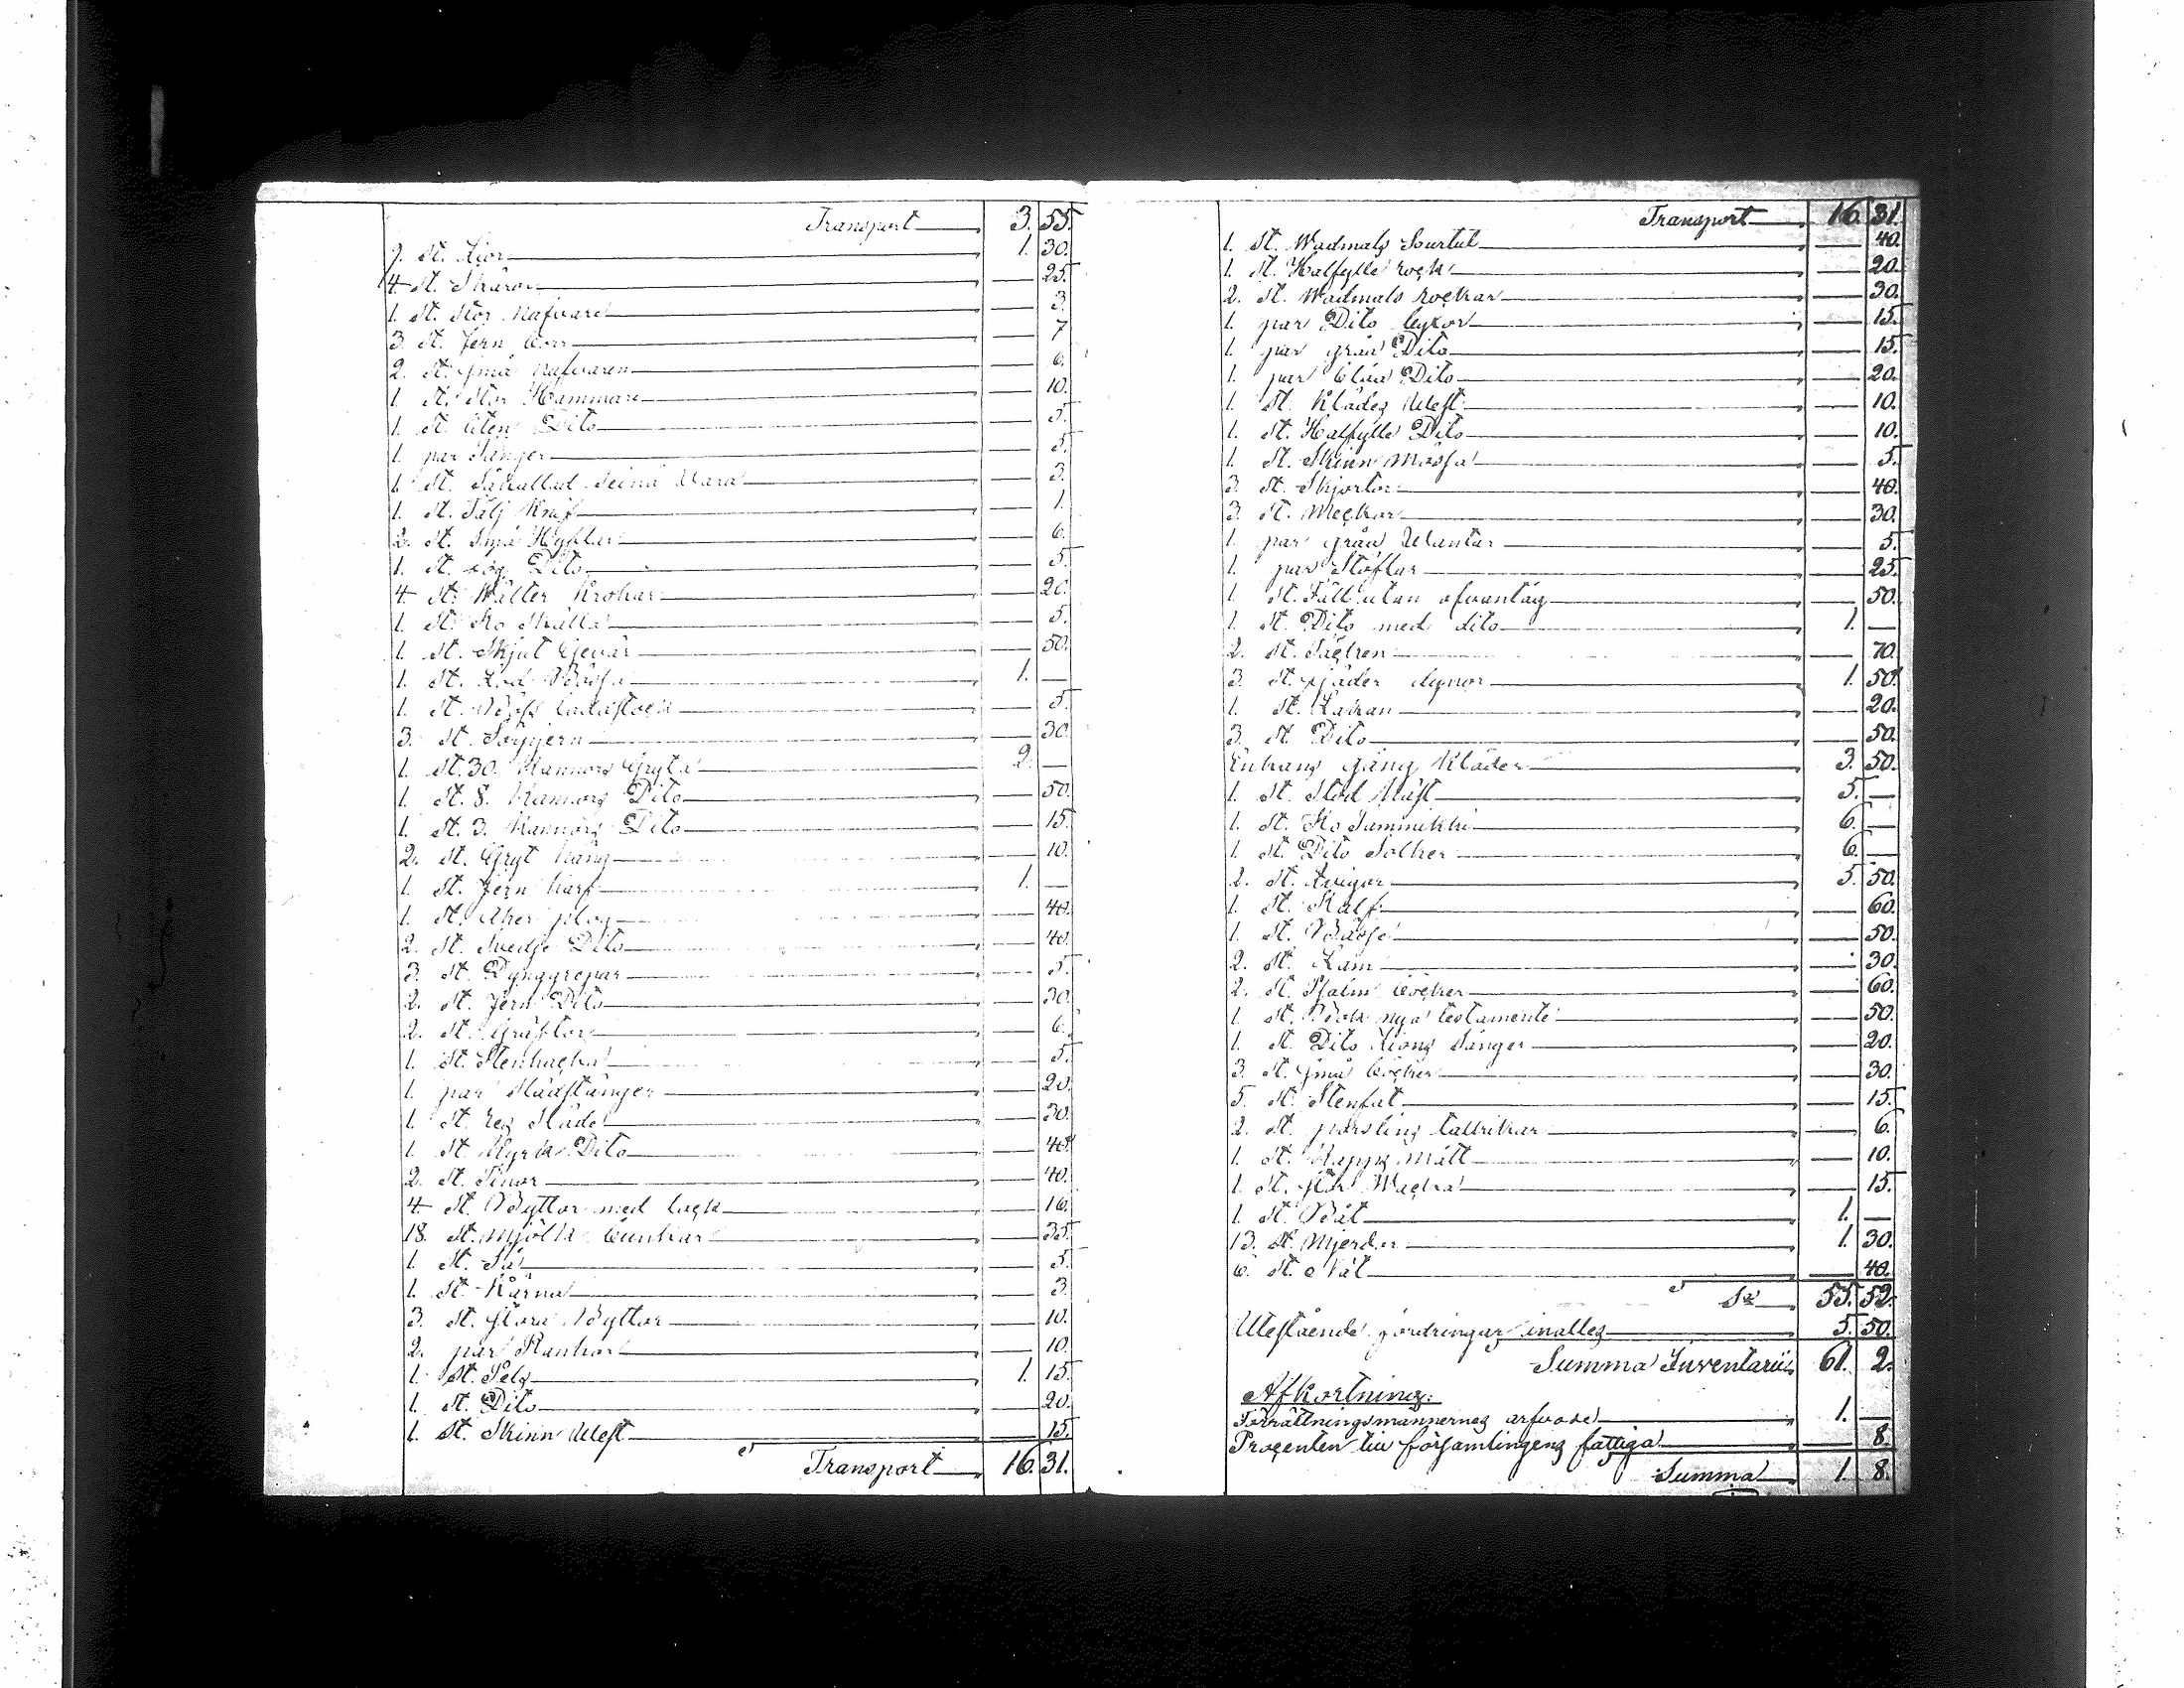 Transport 3. 55.
9. St. Liar 1. 30.
4 St. Skäror — 25.
1. St. Stor Nafvare — 3.
3. St. Jern borr — 7
2. St. små Nafvaren — 6.
1. St. Stor Hammare — 10.
1. St. liten Dito — 5.
1. par Tänger — 5.
1. St. Såkallad — 3.
1. St. Tälj Knif — 1.
2. St. Små Hyflar — 6.
1. St. Dito — 5.
4 St. Krokar — 20.
1. St. Ko Skälla — 5.
1. St. Skjut Gevär — 50.
1. St. Lod Bössa 1. —
1. St. Böss ladustock — 5.
3. St. — 30.
1. St. 30. Kannors Gryta 2. —
1. St. 8. Kannors Dito — 50.
1. St. 3. Kannors Dito — 15.
2. St. Gryt häng — 10.
1. St. Jern harf 1. —
1. St. Åker plog — 40.
2. St. Svedje Dito — 40.
3. St. Dynggrepar — 5.
2. St. Jern Dito — 30.
2. St. Gräftor — 6.
1. St. Stenhacka — 5.
1. par Slädstänger — 20.
1. St. res Släde — 30.
1. St. Kyrk Dito — 40.
2. St. Tinor — 40.
4 St. Byttor med lock — 16.
18. St. mjölk bunkar — 35.
1. St. Så — 5.
1. St. Kärna — 3.
3. St. stora Byttor — 10.
2. par Rankor — 10.
1. St. Sela 1. 15.
1. St. Dito — 20.
1. St. Skinn West — 15.
Transport 16. 31.
Transport 16. 31.
1. St. Wadmals Sourtut — 40.
1. St. Halfylle rock — 20.
2. St. Wadmals rockar — 30.
1. par Dito byxor — 15.
1. par gråa Dito — 15.
1. par blåa Dito — 20.
1. St. Klädes West — 10.
1. St. Halfylle Dito — 10.
1. St. Skinn Mössa — 5.
3. St. Skjortor — 40.
3. St. Meckor — 30.
1. par gråa Wantar — 5.
1. par Stöflar — 25.
1. St. Fäll utan ofvantäg — 50.
1. St. Dito med dito 1. —
2. St. Täcken — 70.
3. St. fjäder dynor 1. 50.
1. St. Lakan — 20.
3. St. Dito — 50.
Enkans gång Kläder 3. 50.
1. St. Stod Häst 5. —
1. St. Ko Tummikki 6. —
1. St. Dito 6. —
2. St. Qvigor 5. 50.
1. St. Kalf — 60.
1. St. Bässe — 50.
2. St. Lam — 30.
2. St. Psalm böcker — 60.
1. St. Bok nya testamente — 50.
1. St. Dito Zions Sånger — 20.
3. St. små böcker — 30.
5. St. Stenfat — 15.
2. St. porslins tallrikar — 6.
1. St. Kapps mått — 10.
1. St. Wacka — 15.
1. St. Båt 1. —
13. St. Mjerdar 1. 30.
6. St. Nät — 40.
Sa 55. 52.
Utestående fordringar inalles 5. 50.
Summa Inventarii 61. 2.
Afkortning:
Förrättningsmännernes arfvode 1. —
Procenten till församlingens fattiga — 8.
Summa 1. 8.